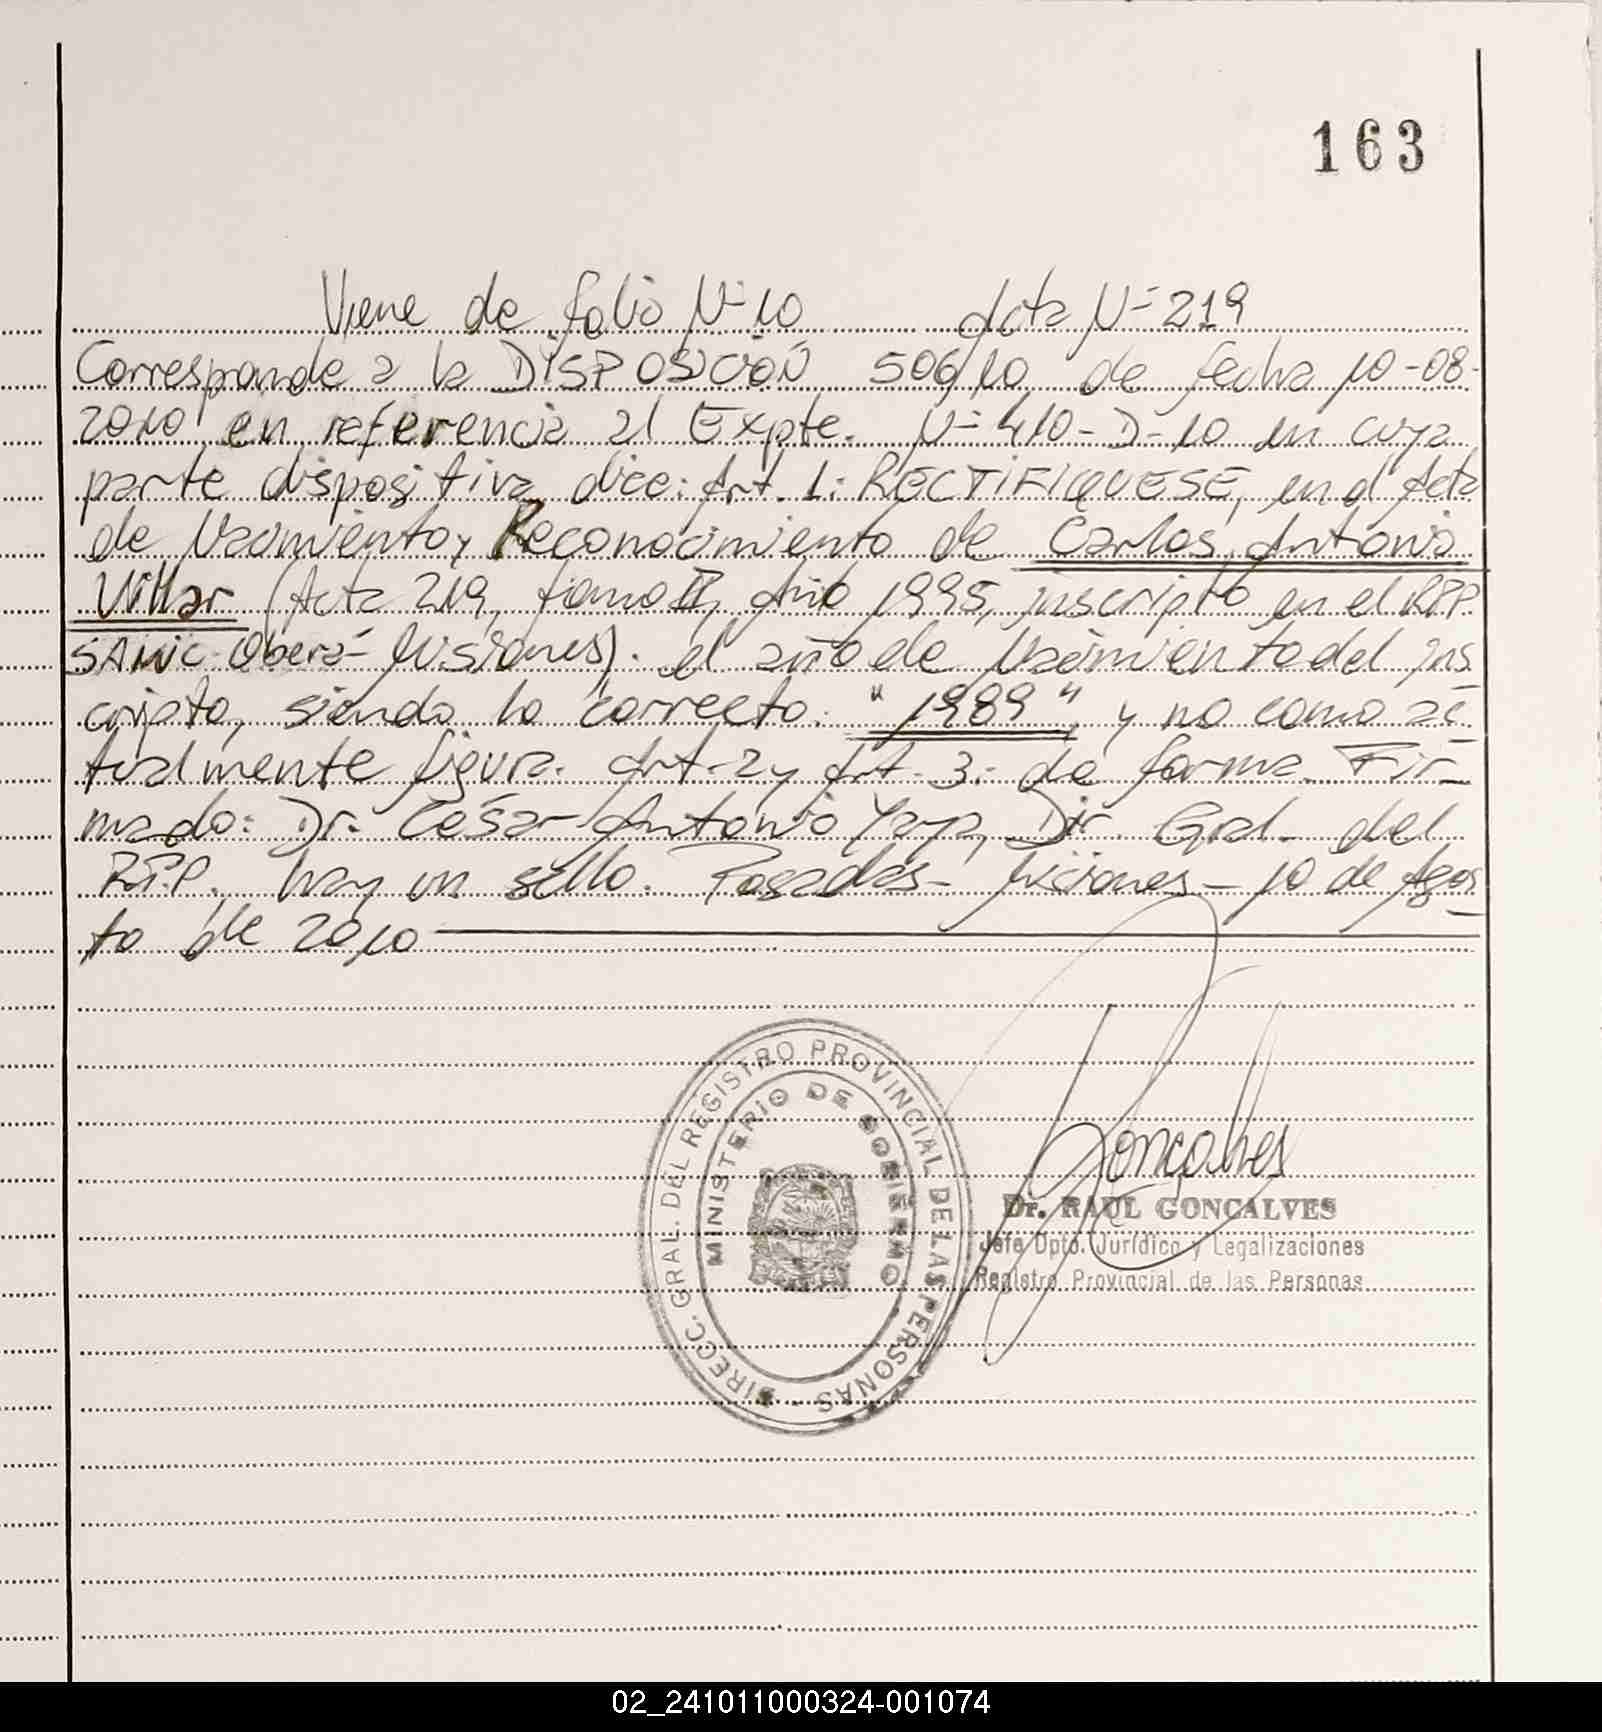 163
Viene de folio Nº 10 Acta Nº 219
Corresponde a la DISPOSICIÓN 506/10 de fecha 10-08-
2010 en referencia al Expte. Nº 410-D-10 en cuya
parte dispositiva dice: Art. 1: RECTIFIQUESE, en el Acta
de Nacimiento y Reconocimiento de Carlos Antonio
Villar (Acta 219, tomo II, Año 1995, inscripto en el RPP.
SAMIC-Oberá-Misiones). el año de Nacimiento del ins
cripto, siendo lo correcto: "1989", y no como ac
tualmente figura. Art-2 y Art-3.- de forma. Fir-
mado: Dr. César Antonio Yaya, Dir. Gral. del
R.P.P. hay un sello. Posadas- Misiones- 10 de Agos
to de 2010
DIRECC. GRAL. DEL REGISTRO PROVINCIAL DE LAS PERSONAS
MINISTERIO DE GOBIERNO
Goncalves
Dr. RAUL GONCALVES
Jefe Dpto. Jurídico y Legalizaciones
Registro Provincial de las Personas
02_241011000324-001074